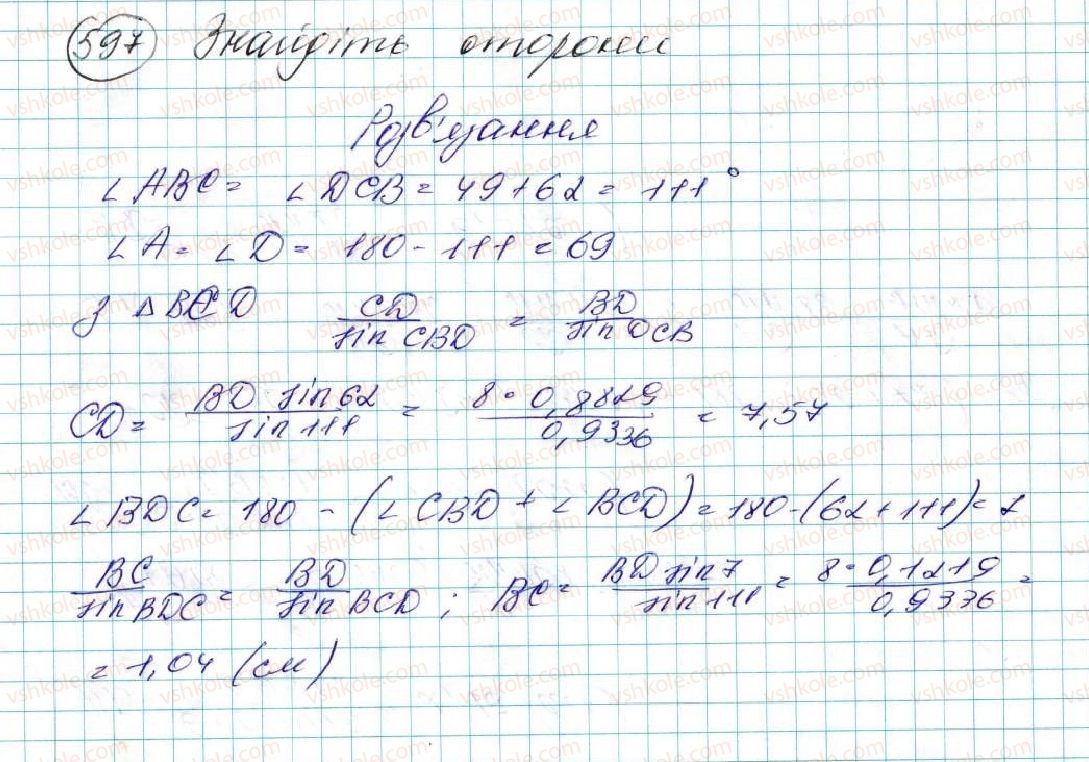 597 Знайдіть сторони
Розв'язання
∠ABC = ∠DCB = 49+62 = 111°
∠A = ∠D = 180 - 111 = 69
З △BCD CD/sin CBD = BD/sin DCB
CD = BD·sin 62/sin 111 = 8·0,8829/0,9336 = 7,57
∠BDC = 180 - (∠CBD + ∠BCD) = 180-(62+111) = 7
BC/sin BDC = BD/sin BCD ; BC = BD sin 7/sin 111 = 8·0,1219/0,9336 =
= 1,04 (см)